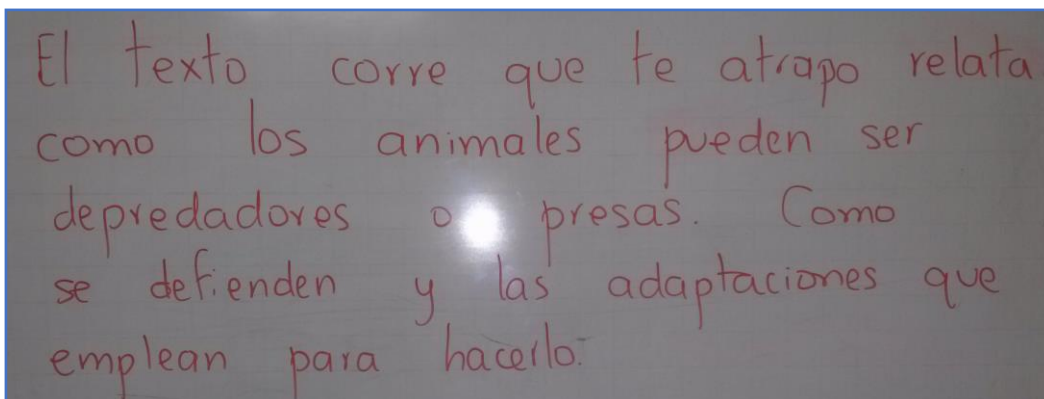 El texto corre que te atrapo relata
como los animales pueden ser
depredadores o presas. Como
se defienden y las adaptaciones que
emplean para hacerlo.